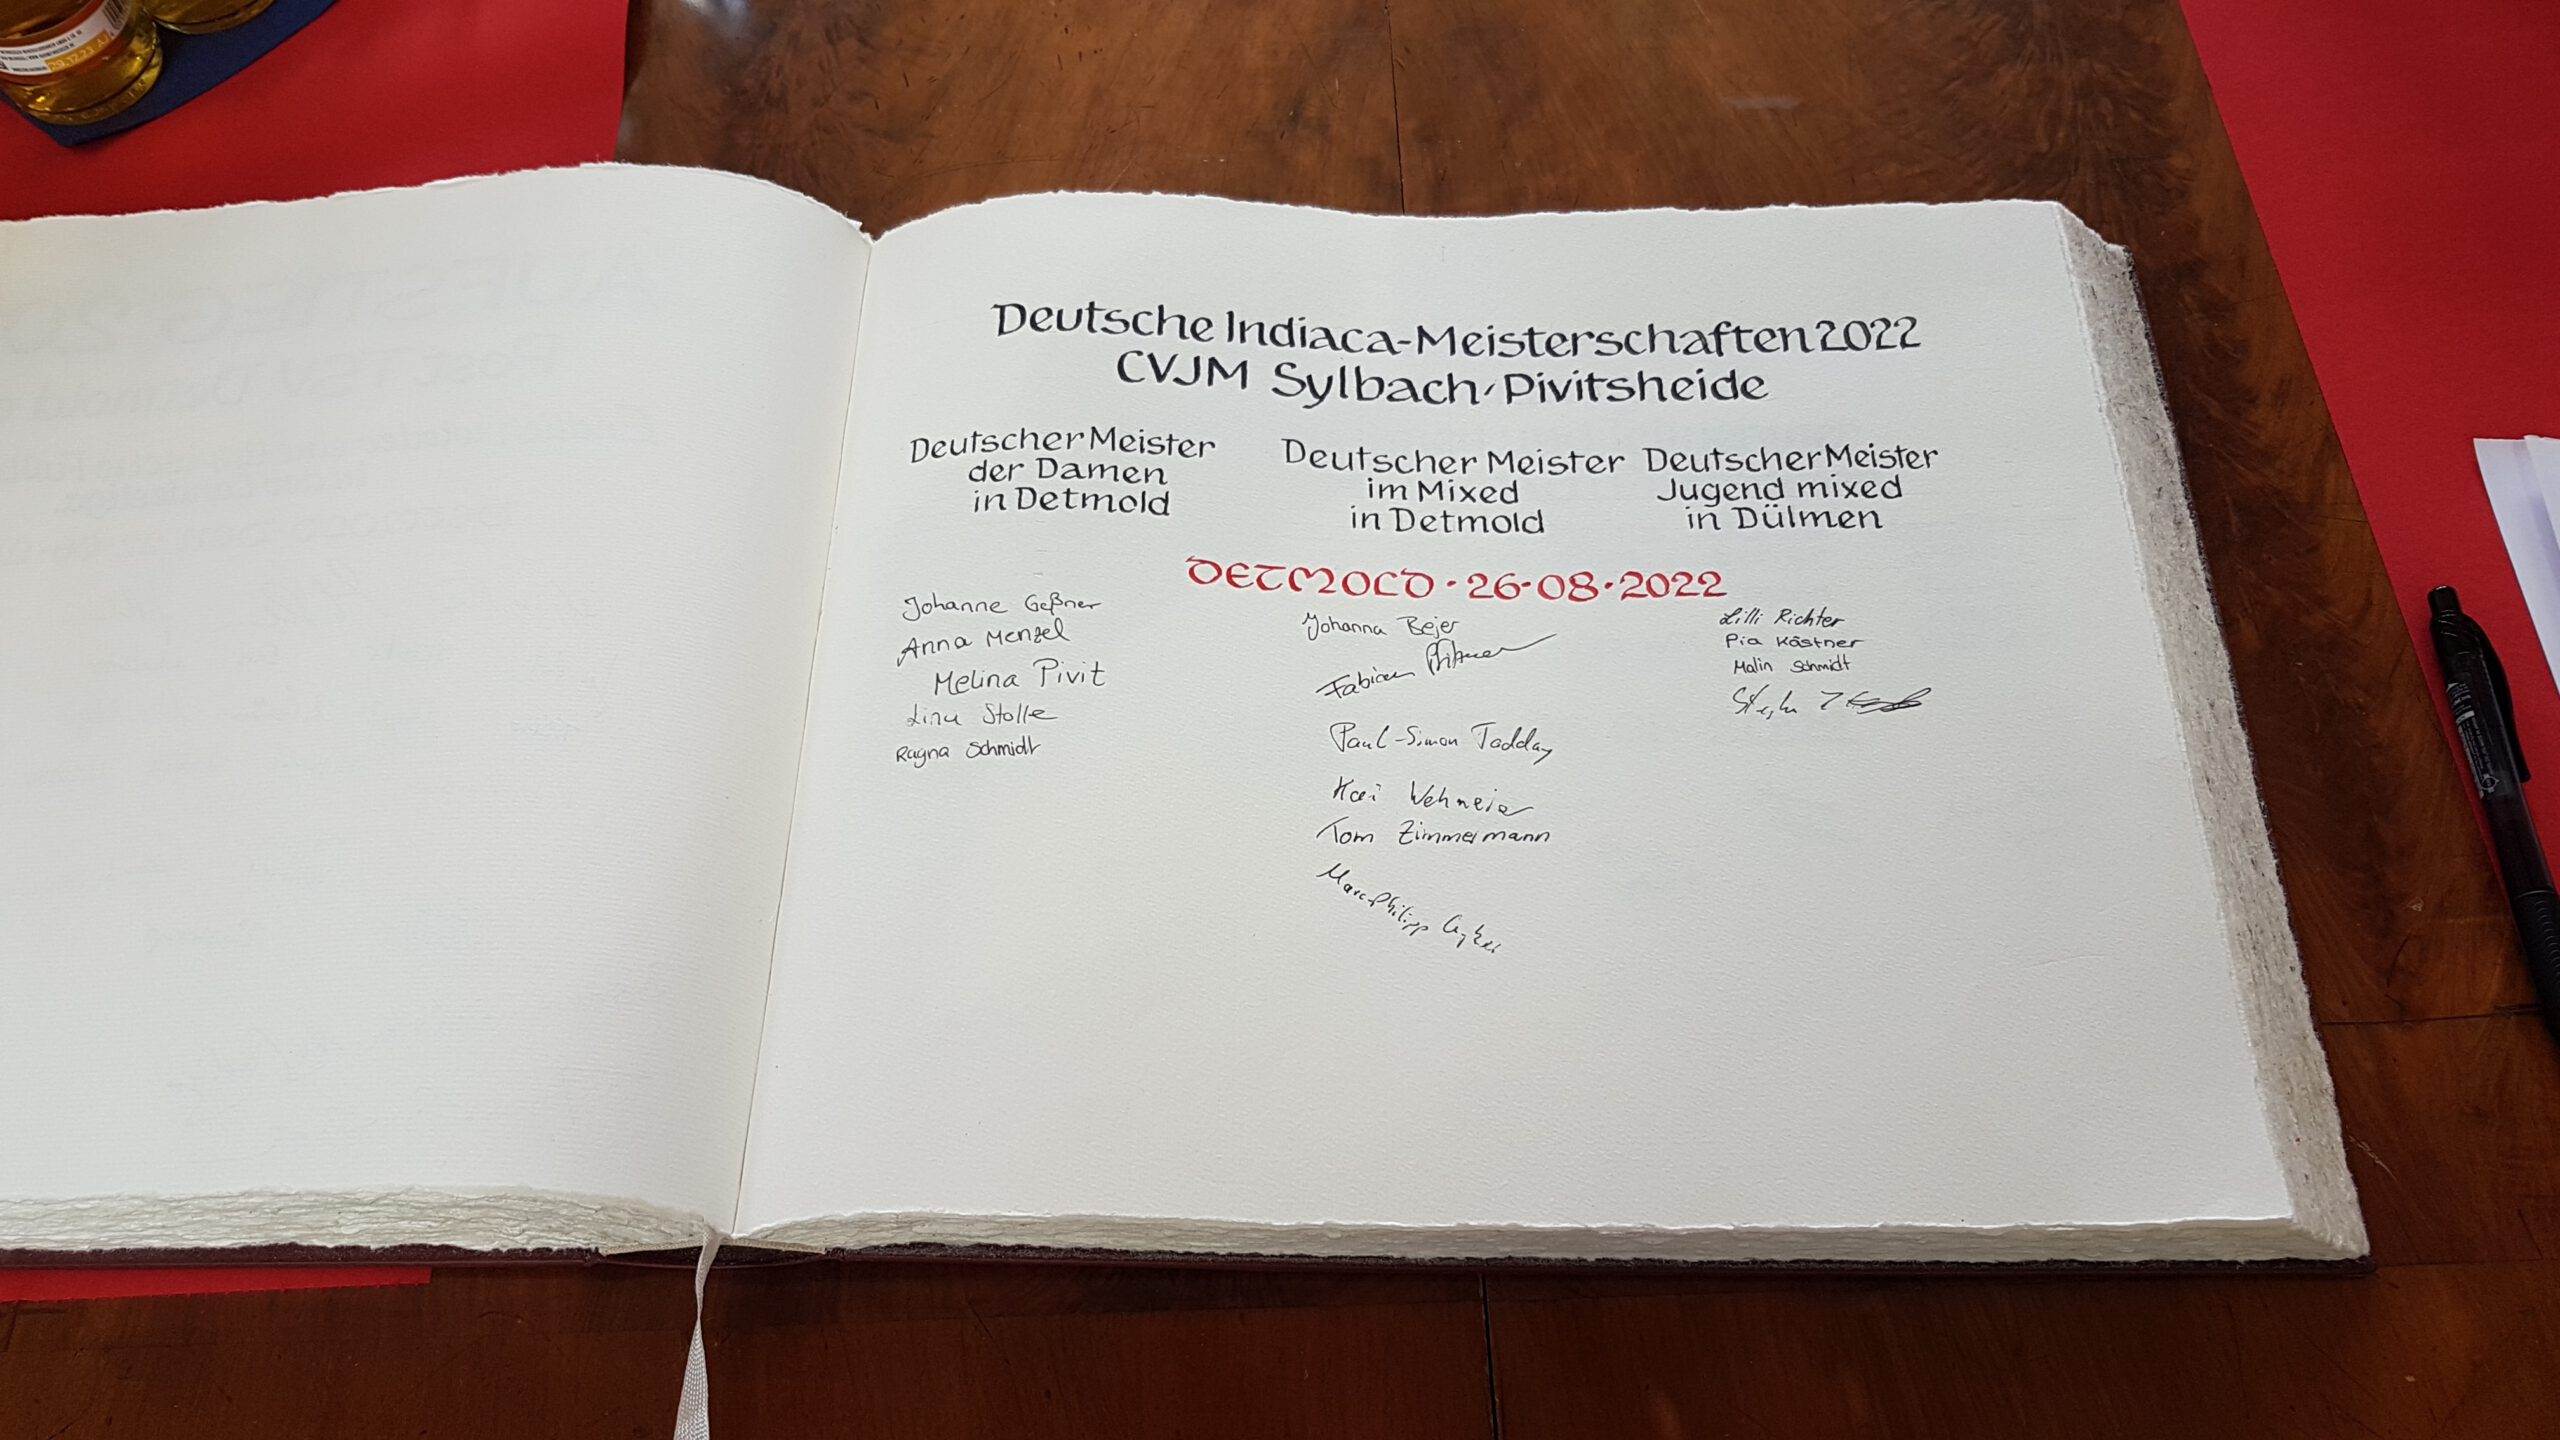 Deutsche Indiaca-Meisterschaften 2022
CVJM Sylbach/Pivitsheide
Deutscher Meister
der Damen
in Detmold
Deutscher Meister
im Mixed
in Detmold
Deutscher Meister
Jugend mixed
in Dülmen
DETMOLD · 26·08·2022
Johanne Geßner
Anna Menzel
Melina Pivit
Lina Stolle
Ragna Schmidt
Johanna Bejer
Fabian
Paul-Simon Tadday
Kai Wehmeier
Tom Zimmermann
Marc-Philipp
Lilli Richter
Pia Köstner
Malin Schmidt